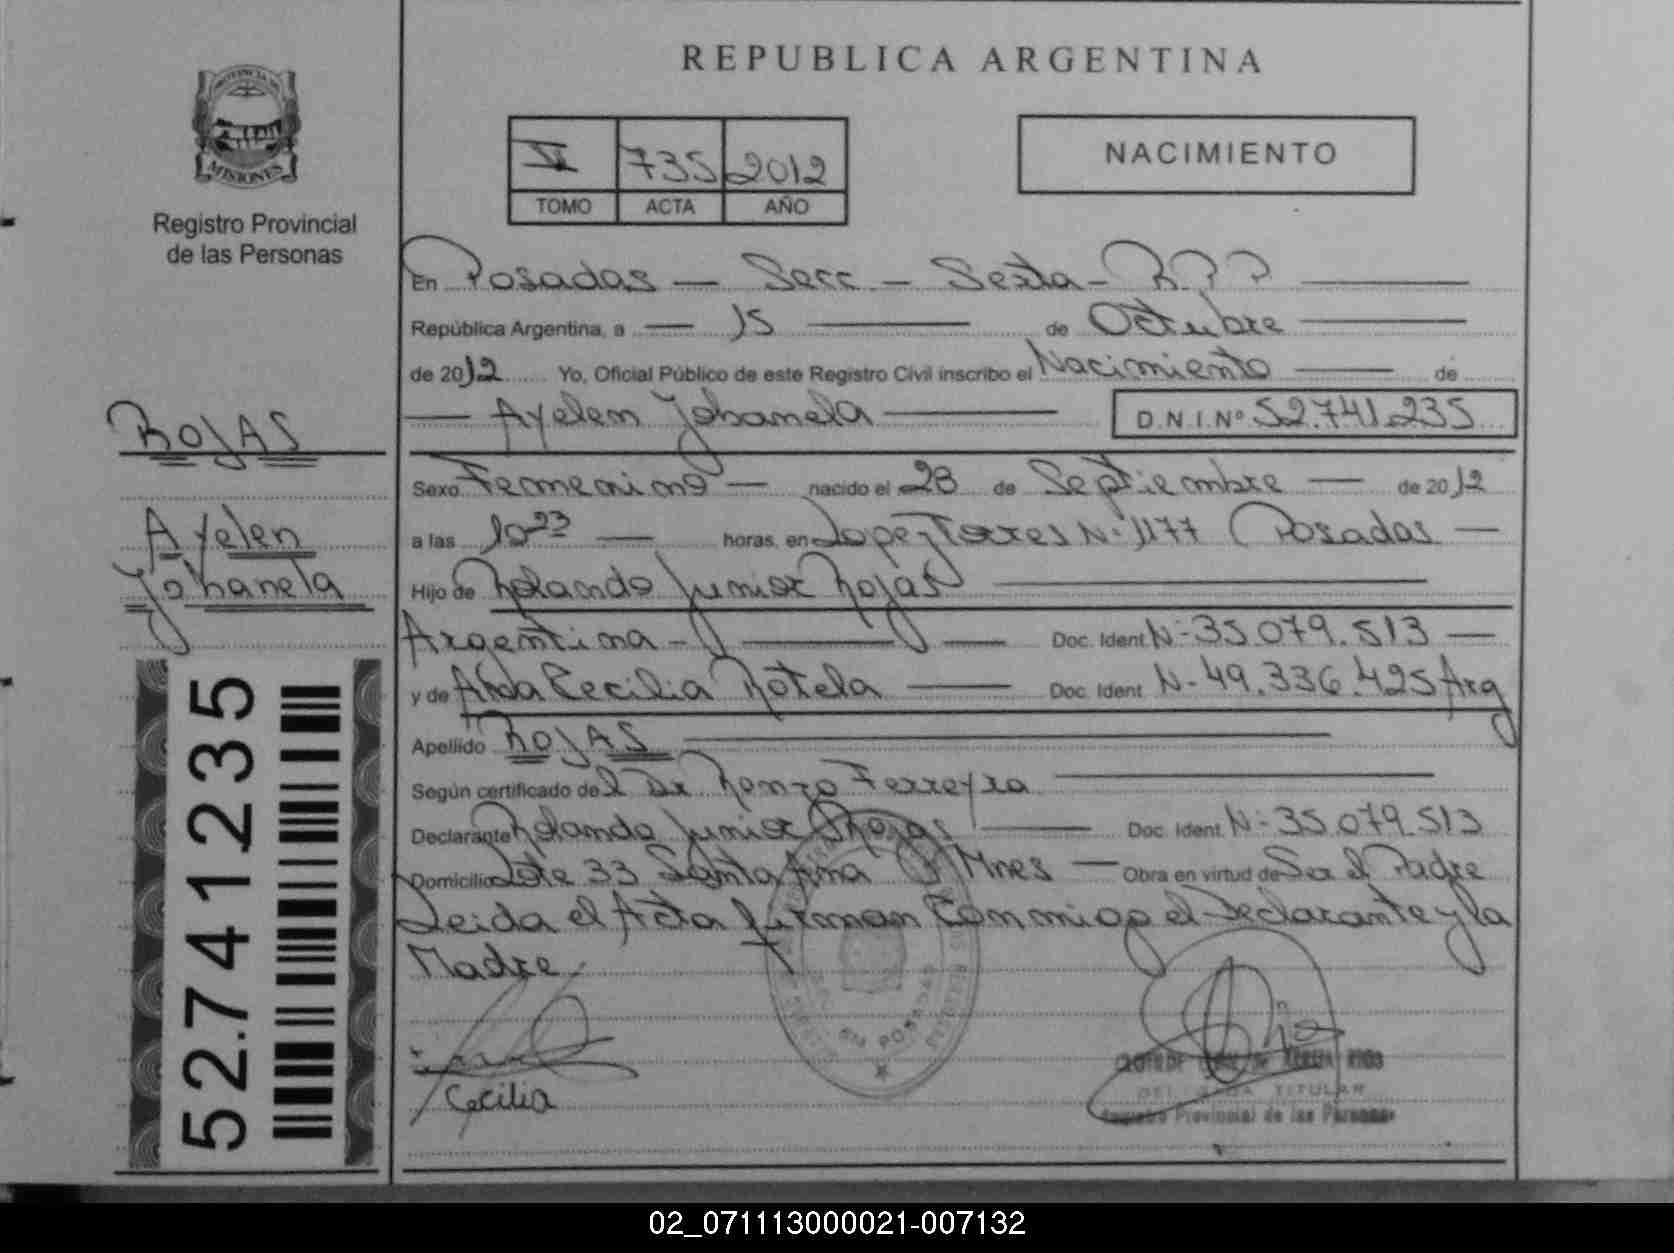 REPUBLICA ARGENTINA
PROVINCIA DE
MISIONES
Registro Provincial
de las Personas
VI 735 2012
TOMO ACTA AÑO
NACIMIENTO
En Posadas — Secc — Sexta - R.P.P
República Argentina, a — 15 — de Octubre
de 2012 Yo, Oficial Público de este Registro Civil inscribo el Nacimiento — de
— Ayelen Johanela — D.N.I.Nº 52.741.235
ROJAS
Sexo Femenino — nacido el 28 de Septiembre — de 2012
Ayelen
Johanela
a las 10 23 — horas, en Lopez Torres N- 1177 Posadas —
Hijo de Rolando Junior Rojas
Argentina — Doc. Ident N- 35.079.513 —
y de Cecilia Rotela — Doc. Ident N- 49.336.425 Arg
Apellido ROJAS
Según certificado del Dr Renzo Ferreyra
Declarante Rolando Junior Rojas — Doc. Ident. N- 35.079.513
Domicilio Lote 33 Santa Ana Mnes — Obra en virtud de Ser el Padre
Leida el Acta firman Conmigo el Declarante y la
Madre.
52.741.235
POSADAS
Cecilia
TITULAR
Registro Provincial de las Personas
02_071113000021-007132